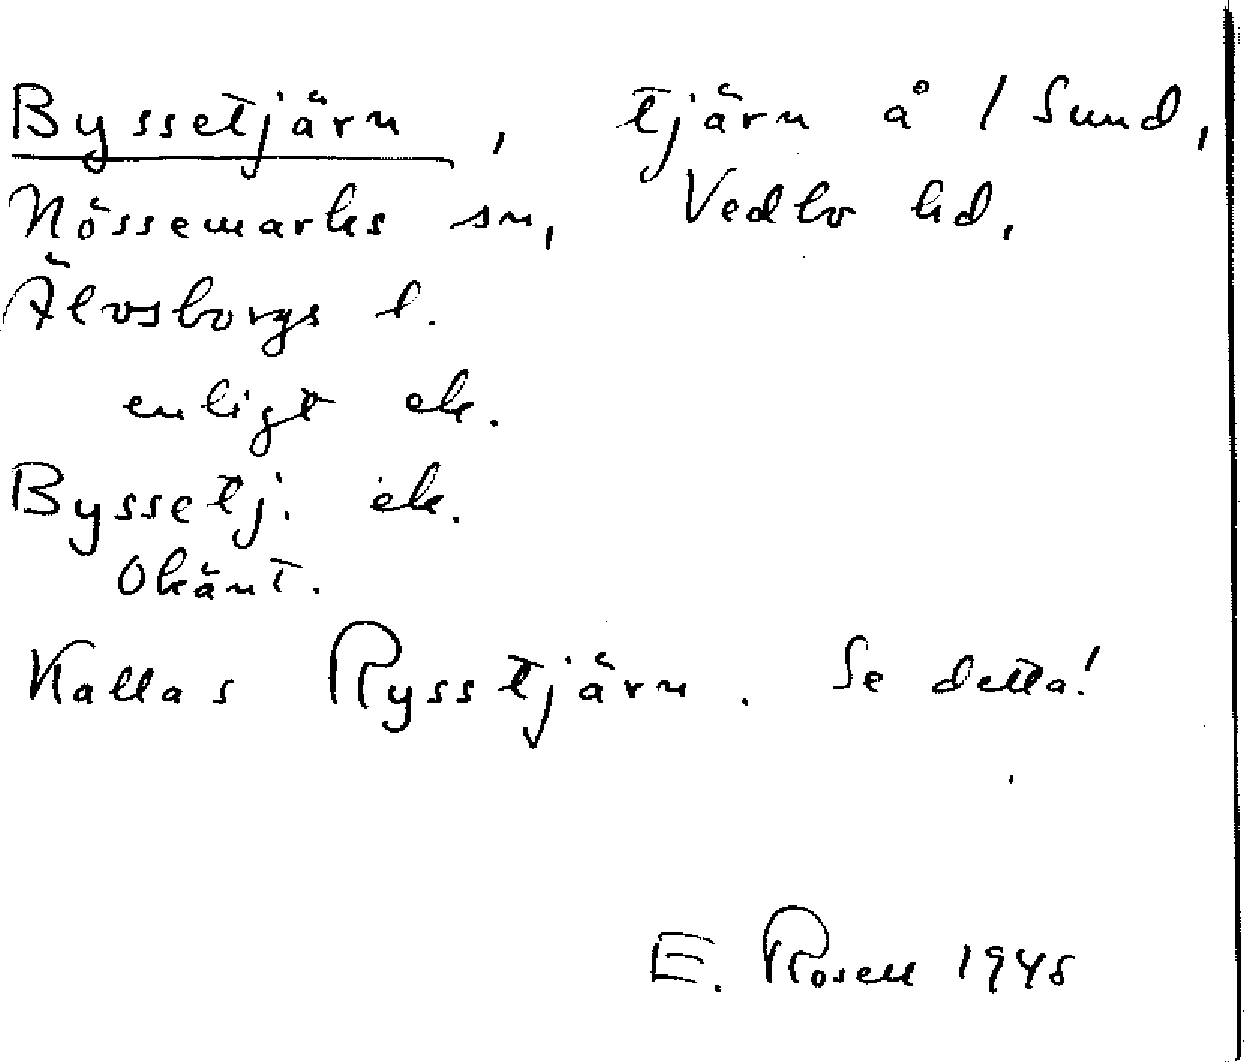 Byssetjärn, tjärn å 1 Sund,
Nössemarks sn, Vedbo hd,
Älvsborgs l.
enligt ek.
Byssetj. ek.
Okänt.
Kallas Rysstjärn. Se detta!
E. Rosell 1948